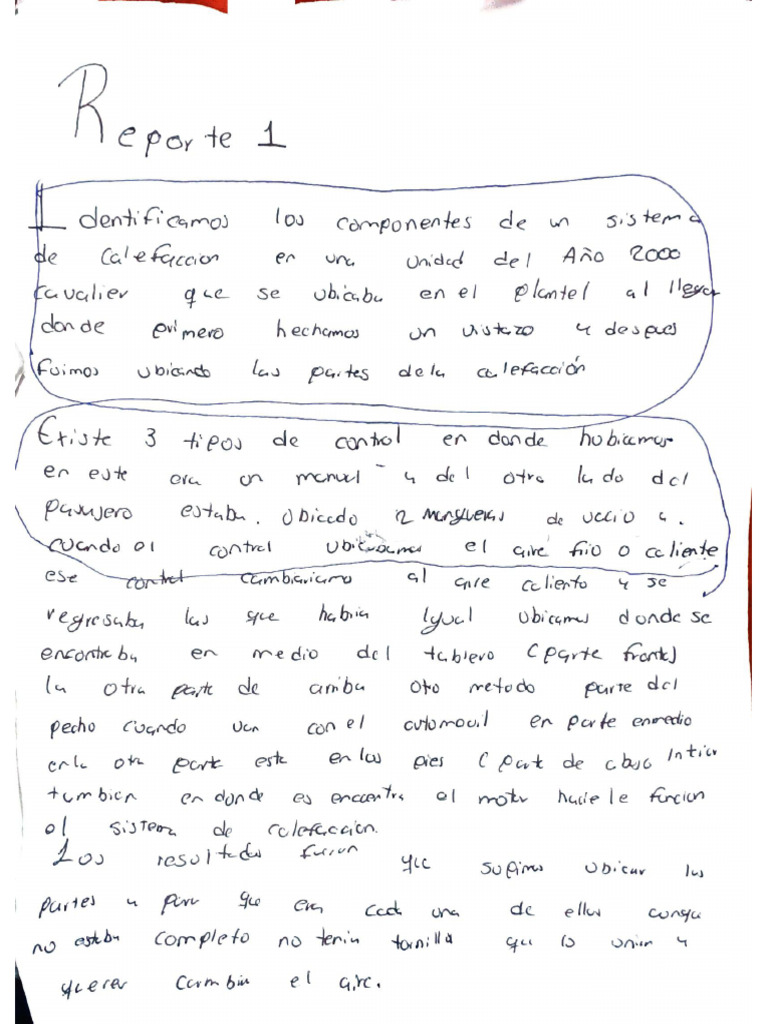 Reporte 1
Identificamos los componentes de un sistema
de calefaccion en una unidad del Año 2000
cavalier que se ubicaba en el plantel al llegar
donde primero hechamos un vistazo y despues
fuimos ubicando las partes de la calefacción
Existe 3 tipos de control en donde hubicamos
en este era un manual y del otro lado del
pasajero estaba. Ubicado 2 mangueras de vacio y.
cuando el control ubicabamos el aire frio o caliente
ese control cambiariamo al aire caliento y se
regresaba las que habria Igual ubicamos donde se
encontraba en medio del tablero (parte frontal)
la otra parte de arriba oto metodo parte del
pecho cuando van con el automovil en parte enmedio
en la otra parte esta en los pies (part de abajo Intior
tambien en donde es encuentra el motor hacie le funcion
el sistema de calefaccion.
Los resultados fueron que supimos ubicar las
partes y para que era cada una de ellas
no estaba completo no tenia tornilla que lo unian y
querer cambiar el aire.